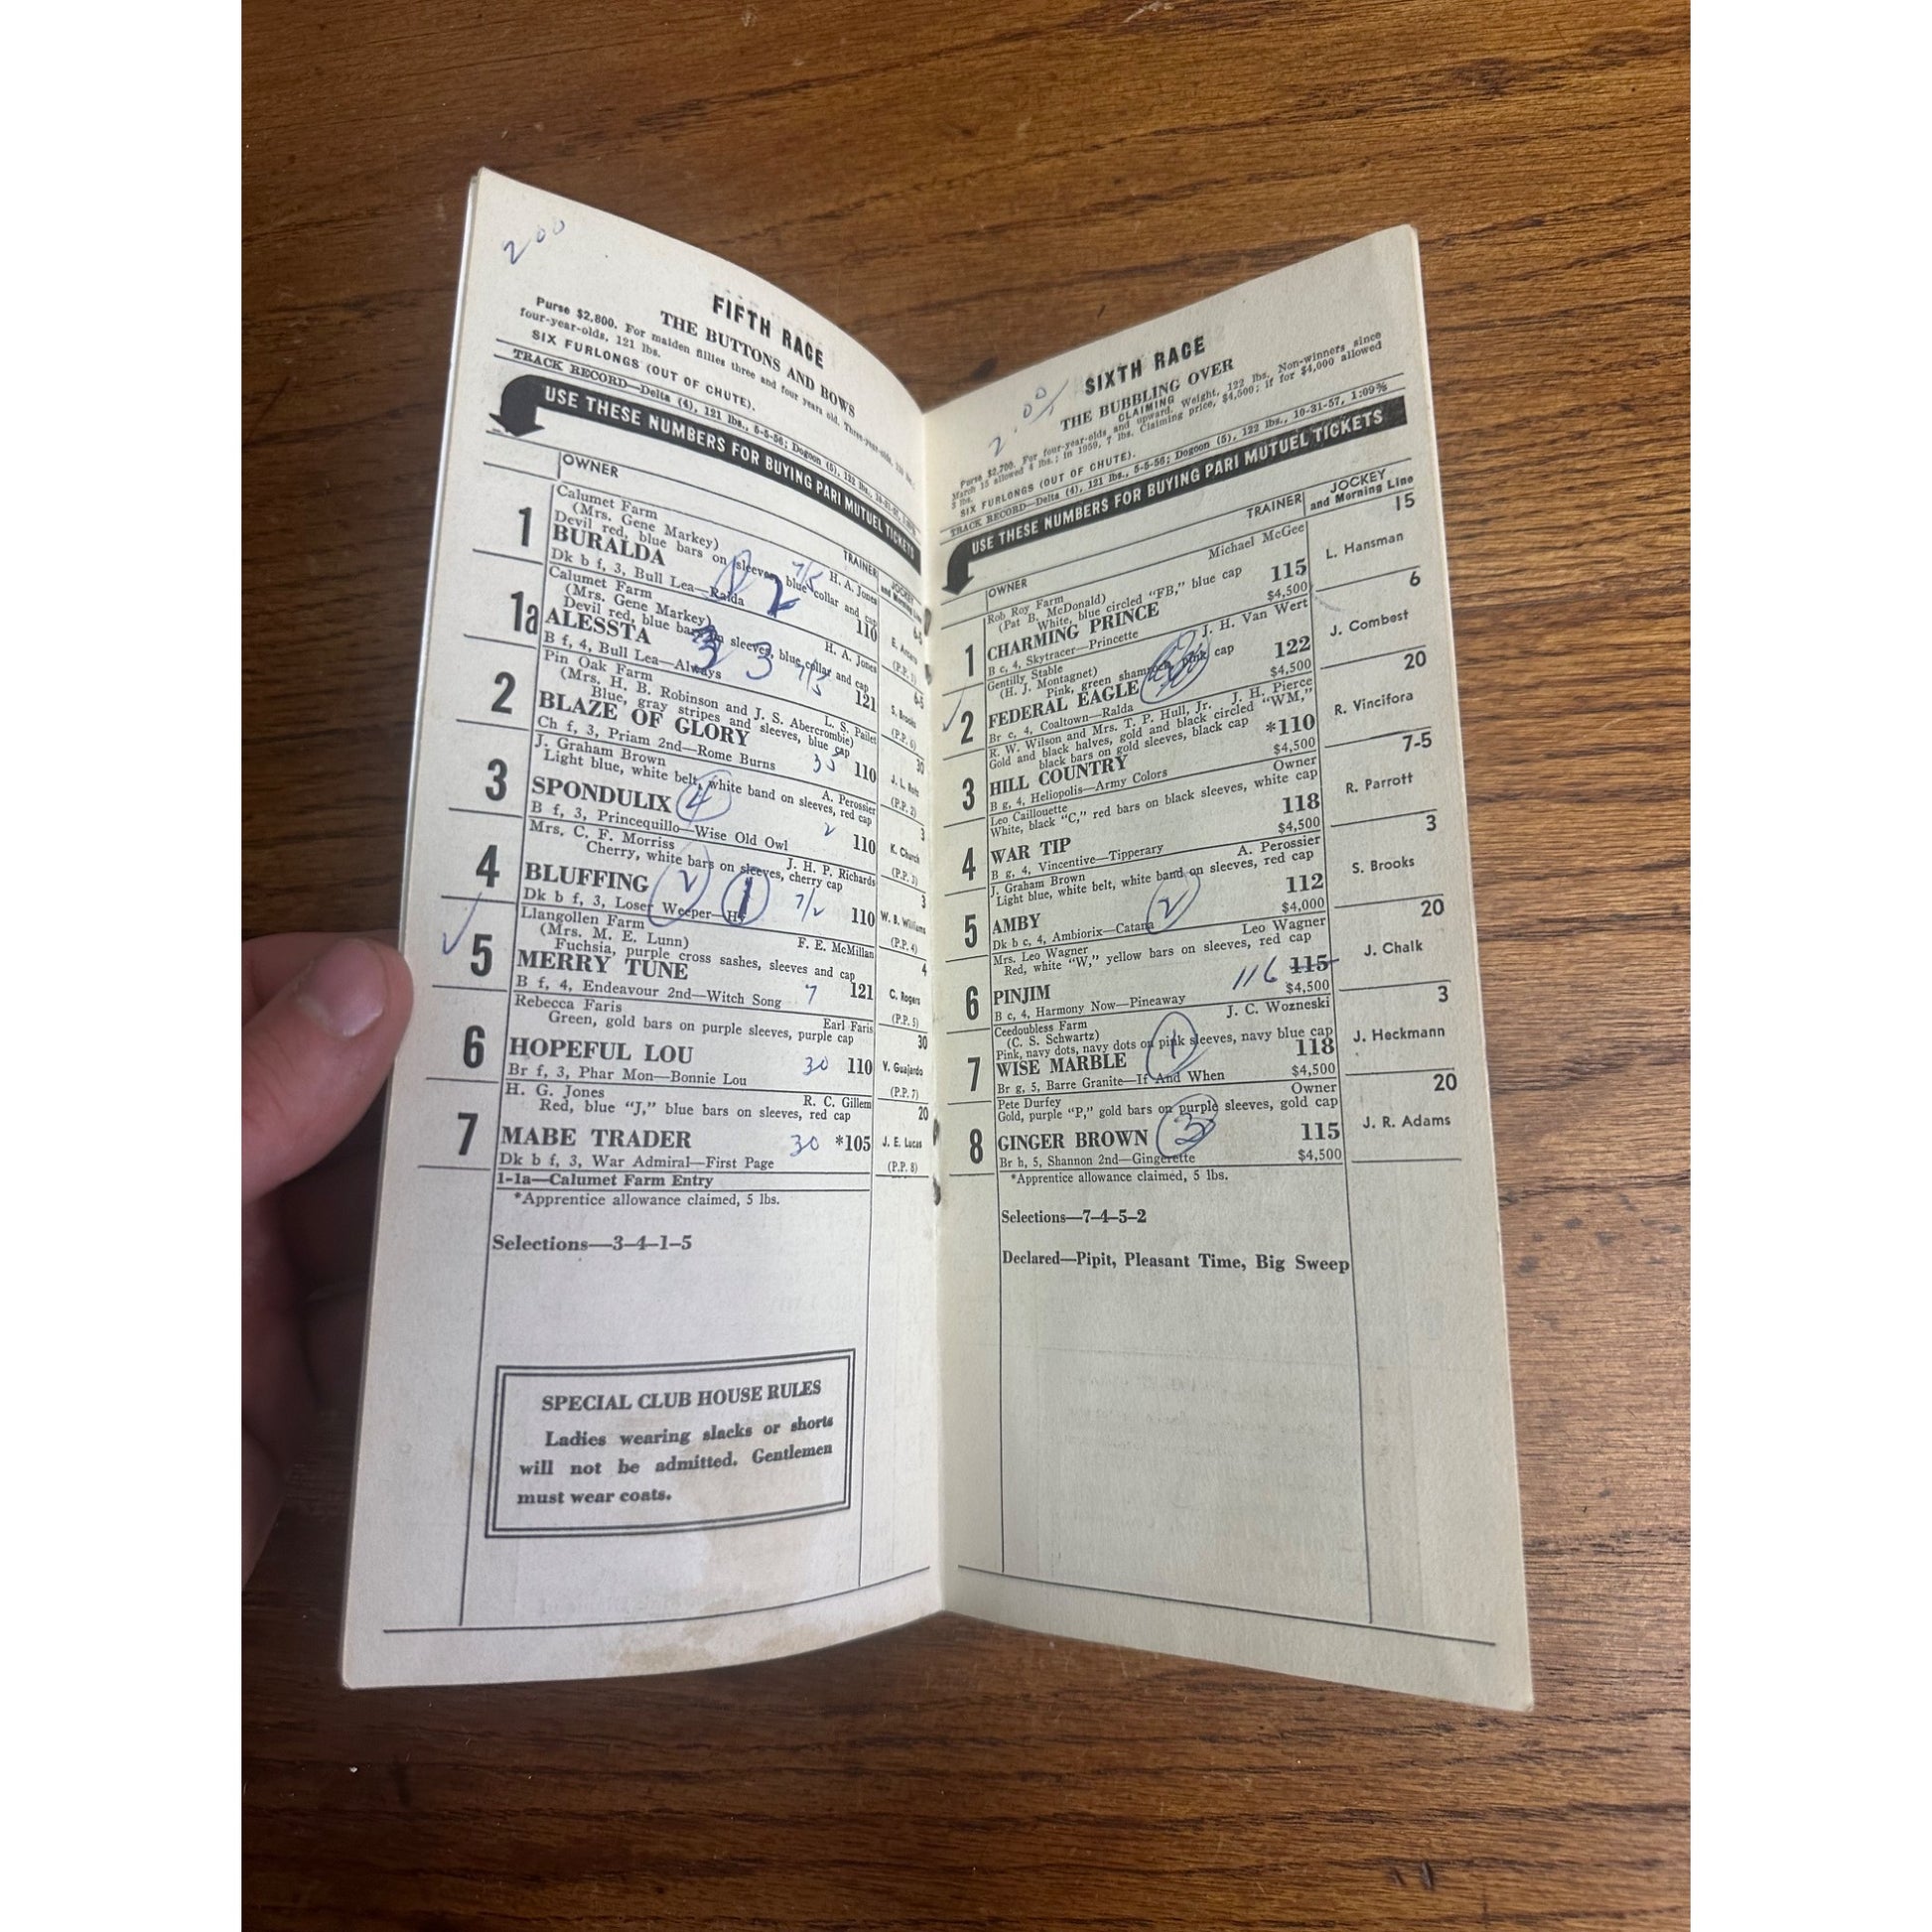 200
FIFTH RACE
THE BUTTONS AND BOWS
Purse $2,800. For maiden fillies three and four years old. Three-year-olds, 110 lbs.;
four-year-olds, 121 lbs.
SIX FURLONGS (OUT OF CHUTE).
TRACK RECORD—Delta (4), 121 lbs., 5-5-56; Dogoon (5), 122 lbs., 10-31-57, 1:09⅗
USE THESE NUMBERS FOR BUYING PARI MUTUEL TICKETS
OWNER TRAINER JOCKEY and Morning Line
Calumet Farm H. A. Jones 6-5
(Mrs. Gene Markey)
Devil red, blue bars on sleeves, blue collar and cap
1 BURALDA 2 7/5 110 E. Arcaro
Dk b f, 3, Bull Lea—Ralda (P.P. 1)
Calumet Farm H. A. Jones 6-5
(Mrs. Gene Markey)
Devil red, blue bars on sleeves, blue collar and cap
1a ALESSTA 3 3 7/5 121 S. Brooks
B f, 4, Bull Lea—Always (P.P. 6)
Pin Oak Farm L. S. Pailet 30
(Mrs. H. B. Robinson and J. S. Abercrombie)
Blue, gray stripes and sleeves, blue cap
2 BLAZE OF GLORY 35 110 J. L. Rotz
Ch f, 3, Priam 2nd—Rome Burns (P.P. 2)
J. Graham Brown A. Perossier 3
Light blue, white belt, white band on sleeves, red cap
3 SPONDULIX 4 2 110 K. Church
B f, 3, Princequillo—Wise Old Owl (P.P. 3)
Mrs. C. F. Morriss J. H. P. Richards 3
Cherry, white bars on sleeves, cherry cap
4 BLUFFING 2 1 7/2 110 W. B. Williams
Dk b f, 3, Loser Weeper— (P.P. 4)
Llangollen Farm F. E. McMillan 4
(Mrs. M. E. Lunn)
Fuchsia, purple cross sashes, sleeves and cap
5 MERRY TUNE 7 121 C. Rogers
B f, 4, Endeavour 2nd—Witch Song (P.P. 5)
Rebecca Faris Earl Faris 30
Green, gold bars on purple sleeves, purple cap
6 HOPEFUL LOU 30 110 V. Guajardo
Br f, 3, Phar Mon—Bonnie Lou (P.P. 7)
H. G. Jones R. C. Gillem 20
Red, blue "J," blue bars on sleeves, red cap
7 MABE TRADER 30 *105 J. E. Lucas
Dk b f, 3, War Admiral—First Page (P.P. 8)
1-1a—Calumet Farm Entry
*Apprentice allowance claimed, 5 lbs.
Selections—3-4-1-5
SPECIAL CLUB HOUSE RULES
Ladies wearing slacks or shorts
will not be admitted. Gentlemen
must wear coats.
2.00/
SIXTH RACE
THE BUBBLING OVER
CLAIMING
Purse $2,700. For four-year-olds and upward. Weight, 122 lbs. Non-winners since
March 15 allowed 4 lbs.; in 1959, 7 lbs. Claiming price, $4,500; if for $4,000 allowed
3 lbs.
SIX FURLONGS (OUT OF CHUTE).
TRACK RECORD—Delta (4), 121 lbs., 5-5-56; Dogoon (5), 122 lbs., 10-31-57, 1:09⅗
USE THESE NUMBERS FOR BUYING PARI MUTUEL TICKETS
OWNER TRAINER JOCKEY and Morning Line
Rob Roy Farm Michael McGee 15
(Pat B. McDonald)
White, blue circled "FB," blue cap
1 CHARMING PRINCE 115 L. Hansman
B c, 4, Skytracer—Princette $4,500
Gentilly Stable J. H. Van Wert 6
(H. J. Montagnet)
Pink, green shamrock, pink cap
2 FEDERAL EAGLE 122 J. Combest
Br c, 4, Coaltown—Ralda $4,500
R. W. Wilson and Mrs. T. P. Hull, Jr. J. H. Pierce 20
Gold and black halves, gold and black circled "WM,"
black bars on gold sleeves, black cap
3 HILL COUNTRY *110 R. Vincifora
B g, 4, Heliopolis—Army Colors $4,500
Leo Caillouette Owner 7-5
White, black "C," red bars on black sleeves, white cap
4 WAR TIP 118 R. Parrott
B g, 4, Vincentive—Tipperary $4,500
J. Graham Brown A. Perossier 3
Light blue, white belt, white band on sleeves, red cap
5 AMBY 2 112 S. Brooks
Dk b c, 4, Ambiorix—Catana $4,000
Mrs. Leo Wagner Leo Wagner 20
Red, white "W," yellow bars on sleeves, red cap
6 PINJIM 116 115 J. Chalk
B c, 4, Harmony Now—Pineaway $4,500
Ceedoubless Farm J. C. Wozneski 3
(C. S. Schwartz)
Pink, navy dots, navy dots on pink sleeves, navy blue cap
7 WISE MARBLE 1 118 J. Heckmann
Br g, 5, Barre Granite—If And When $4,500
Pete Durfey Owner 20
Gold, purple "P," gold bars on purple sleeves, gold cap
8 GINGER BROWN 3 115 J. R. Adams
Br h, 5, Shannon 2nd—Gingerette $4,500
*Apprentice allowance claimed, 5 lbs.
Selections—7-4-5-2
Declared—Pipit, Pleasant Time, Big Sweep